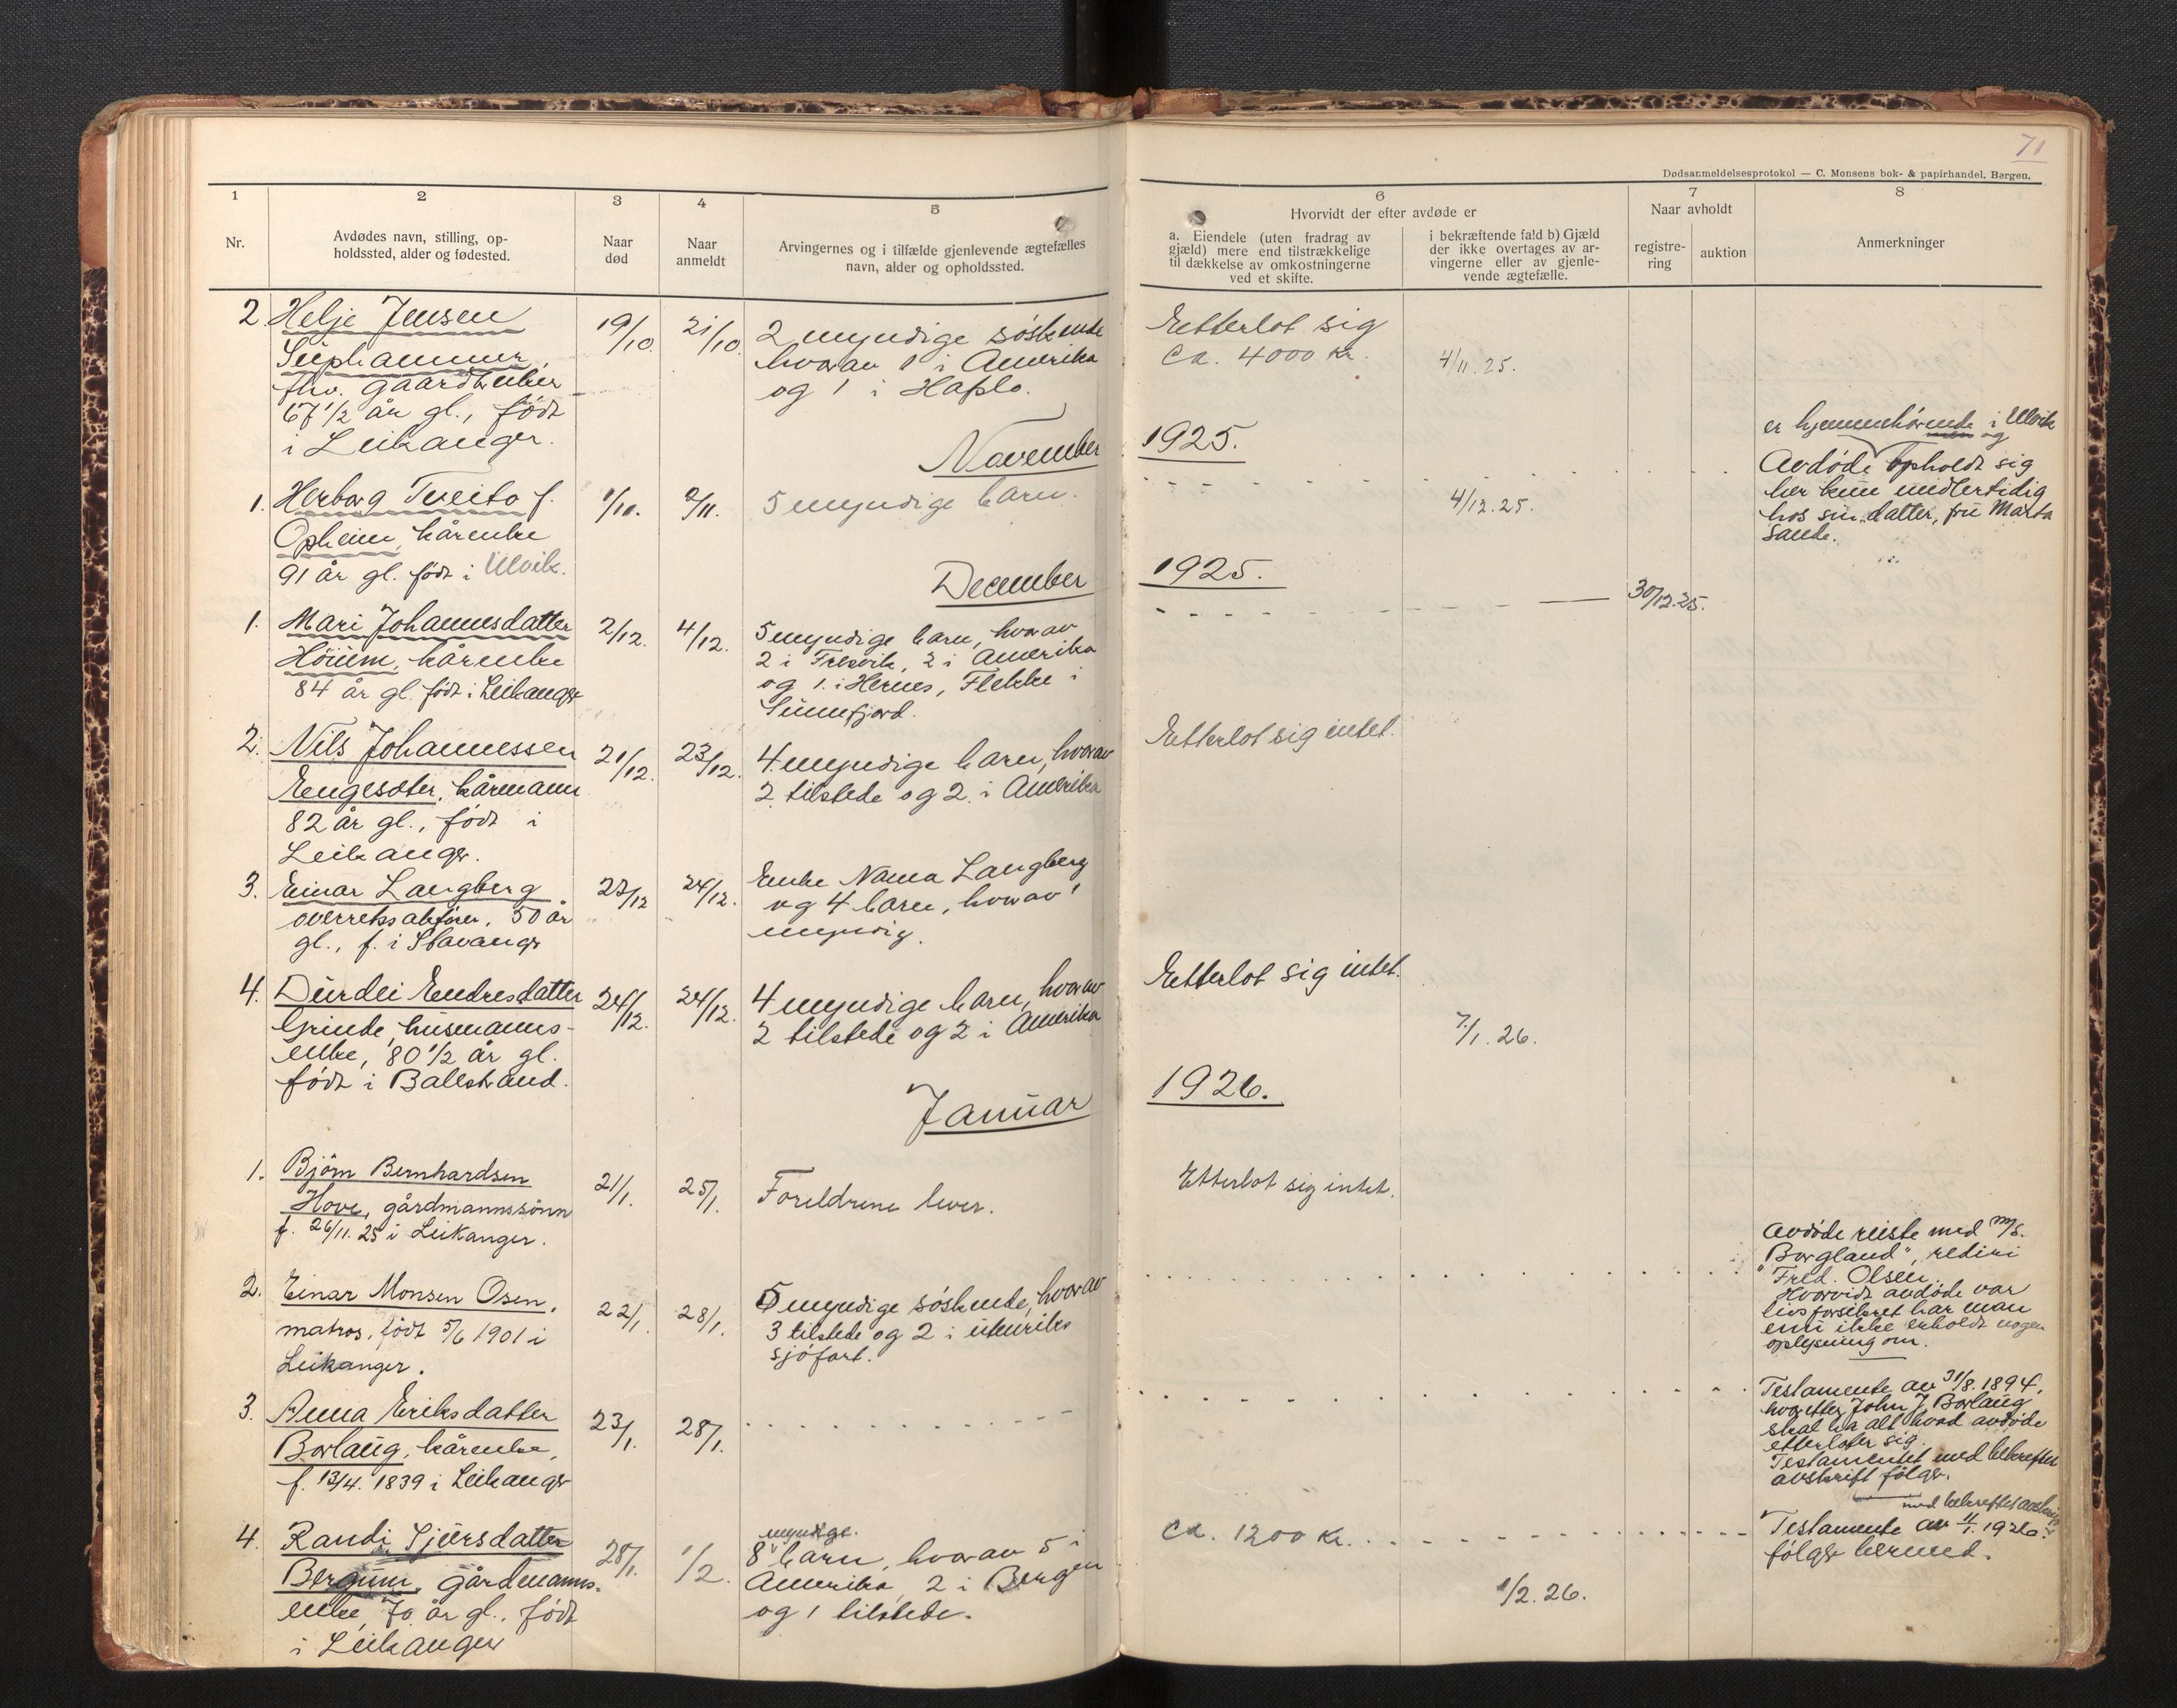 71
Dødsanmeldelsesprotokol — C. Monsens bok- & papirhandel, Bergen.
1 2 3 4 5 6 7 8
Nr.
Avdødes navn, stilling, op-
holdssted, alder og fødested.
Naar
død
Naar
anmeldt
Arvingernes og i tilfælde gjenlevende ægtefælles
navn, alder og opholdssted.
Hvorvidt der efter avdøde er
a. Eiendele (uten fradrag av
gjæld) mere end tilstrækkelige
til dækkelse av omkostningerne
ved et skifte.
i bekræftende fald b) Gjæld
der ikke overtages av ar-
vingerne eller av gjenle-
vende ægtefælle.
Naar avholdt
registre-
ring
auktion
Anmerkninger
2 Helje Jensen
fhv. gaardbruker
67 1/2 år gl., født
i Leikanger.
19/10. 21/10.
2 myndige søskende
hvorav 1 i Amerika
og 1 i Hafslo.
Etterlot sig
ca. 4000 kr.
4/11.25.
November 1925.
1. Herborg Tveito f.
Opheim, kårenke
91 år gl. født i Ulvik.
1/11. 2/11.
5 myndige barn.
4/12.25.
er hjemmehørende i Ulvik
og
Avdøde opholdt sig
her kun midlertidig
hos sin datter, fru Marta
Sande.
December 1925.
1. Mari Johannesdatter
Höium, kårenke
84 år gl. født i Leikanger
2/12. 4/12.
5 myndige barn, hvorav
2 i Fresvik, 2 i Amerika
og 1 i Hernes, Flekke i
Sunnfjord.
30/12.25.
2. Nils Johannessen
Engesæter, kårmann
82 år gl., født i
Leikanger.
21/12. 23/12.
4 myndige barn, hvorav
2 tilstede og 2 i Amerika
Etterlot sig intet.
3. Einar Langberg
overretssakfører, 50 år
gl., f. i Stavanger
23/12 24/12.
Enke Nanna Langberg
og 4 barn, hvorav 1
myndig.
4. Durdei Endresdatter
Grinde, husmanns-
enke, 80 1/2 år gl.
født i Balestrand.
24/12. 24/12.
4 myndige barn, hvorav
2 tilstede og 2 i Amerika
Etterlot sig intet.
7/1.26.
Januar 1926.
1. Bjørn Bernhardsen
Hove, gårdmannssønn
f. 26/11.25 i Leikanger.
21/1. 25/1.
Foreldrene lever.
Etterlot sig intet.
2. Einar Monsen Osen,
matros, født 5/6 1901 i
Leikanger.
22/1. 28/1.
5 myndige søskende, hvorav
3 tilstede og 2 i utenriks
sjøfart.
Avdøde reiste med M/S.
"Borgland", rederi
Fred. Olsen.
Hvorvidt avdøde var
livsforsikret har man
enn ikke erholdt nogen
oplysning om.
3. Anna Eriksdatter
Borlaug, kårenke,
f. 13/4. 1839 i Leikanger
23/1. 28/1.
Testamente av 31/8. 1894,
hvoretter John J. Borlaug
skal ha alt hvad avdøde
etterlater sig.
Testamentet med bekreftet
avskrift følger.
4. Randi Sjursdatter
Bergum, gårdmanns-
enke, 70 år gl., født
i Leikanger
28/1. 1/2.
myndige
8 barn, hvorav 5 i
Amerika, 2 i Bergen
og 1 tilstede.
ca. 1200 kr.
1/2.26.
med bekreftet avskrift
Testamente av
følger hermed.